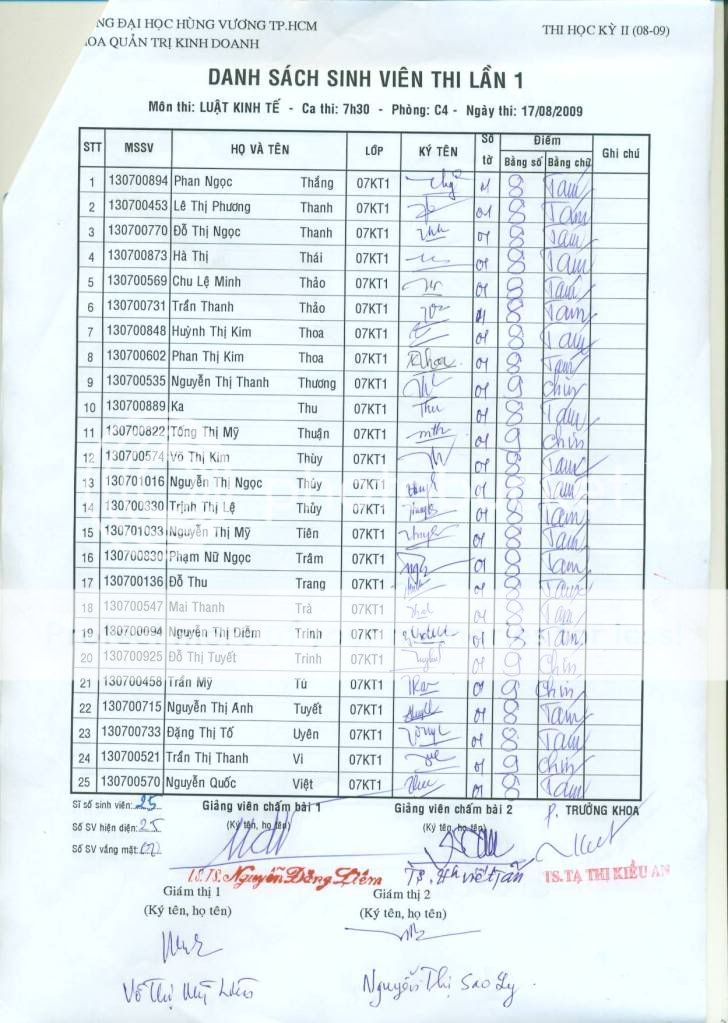 NG ĐẠI HỌC HÙNG VƯƠNG TP.HCM
THI HỌC KỲ II (08-09)
OA QUẢN TRỊ KINH DOANH
DANH SÁCH SINH VIÊN THI LẦN 1
Môn thi: LUẬT KINH TẾ - Ca thi: 7h30 - Phòng: C4 - Ngày thi: 17/08/2009
STT MSSV HỌ VÀ TÊN LỚP KÝ TÊN Số tờ Điểm Ghi chú
Bằng số Bằng chữ
1 130700894 Phan Ngọc Thắng 07KT1 01 8 Tám
2 130700453 Lê Thị Phương Thanh 07KT1 01 8 Tám
3 130700770 Đỗ Thị Ngọc Thanh 07KT1 01 8 Tám
4 130700873 Hà Thị Thái 07KT1 01 8 Tám
5 130700569 Chu Lệ Minh Thảo 07KT1 01 8 Tám
6 130700731 Trần Thanh Thảo 07KT1 01 8 Tám
7 130700848 Huỳnh Thị Kim Thoa 07KT1 01 8 Tám
8 130700602 Phan Thị Kim Thoa 07KT1 Khoa 01 8 Tám
9 130700535 Nguyễn Thị Thanh Thương 07KT1 01 9 Chín
10 130700889 Ka Thu 07KT1 Thu 01 8 Tám
11 130700822 Tống Thị Mỹ Thuận 07KT1 01 9 Chín
12 130700574 Võ Thị Kim Thùy 07KT1 01 8 Tám
13 130701016 Nguyễn Thị Ngọc Thúy 07KT1 01 8 Tám
14 130700330 Trịnh Thị Lệ Thủy 07KT1 01 8 Tám
15 130701033 Nguyễn Thị Mỹ Tiên 07KT1 01 8 Tám
16 130700830 Phạm Nữ Ngọc Trâm 07KT1 01 8 Tám
17 130700136 Đỗ Thu Trang 07KT1 01 8 Tám
18 130700547 Mai Thanh Trà 07KT1 01 8 Tám
19 130700094 Nguyễn Thị Diễm Trinh 07KT1 01 8 Tám
20 130700925 Đỗ Thị Tuyết Trinh 07KT1 01 9 Chín
21 130700458 Trần Mỹ Tú 07KT1 01 9 Chín
22 130700715 Nguyễn Thị Ánh Tuyết 07KT1 01 8 Tám
23 130700733 Đặng Thị Tố Uyên 07KT1 01 8 Tám
24 130700521 Trần Thị Thanh Vi 07KT1 01 9 Chín
25 130700570 Nguyễn Quốc Việt 07KT1 01 8 Tám
Sĩ số sinh viên: 25 Giảng viên chấm bài 1 Giảng viên chấm bài 2 P. TRƯỞNG KHOA
Số SV hiện diện: 25 (Ký tên, họ tên) (Ký tên, họ tên)
Số SV vắng mặt:
TS. Nguyễn Đăng Liêm TS. TẠ THỊ KIỀU AN
Giám thị 1 Giám thị 2
(Ký tên, họ tên) (Ký tên, họ tên)
Võ Thị Mỹ Nguyễn Thị Sao Ly